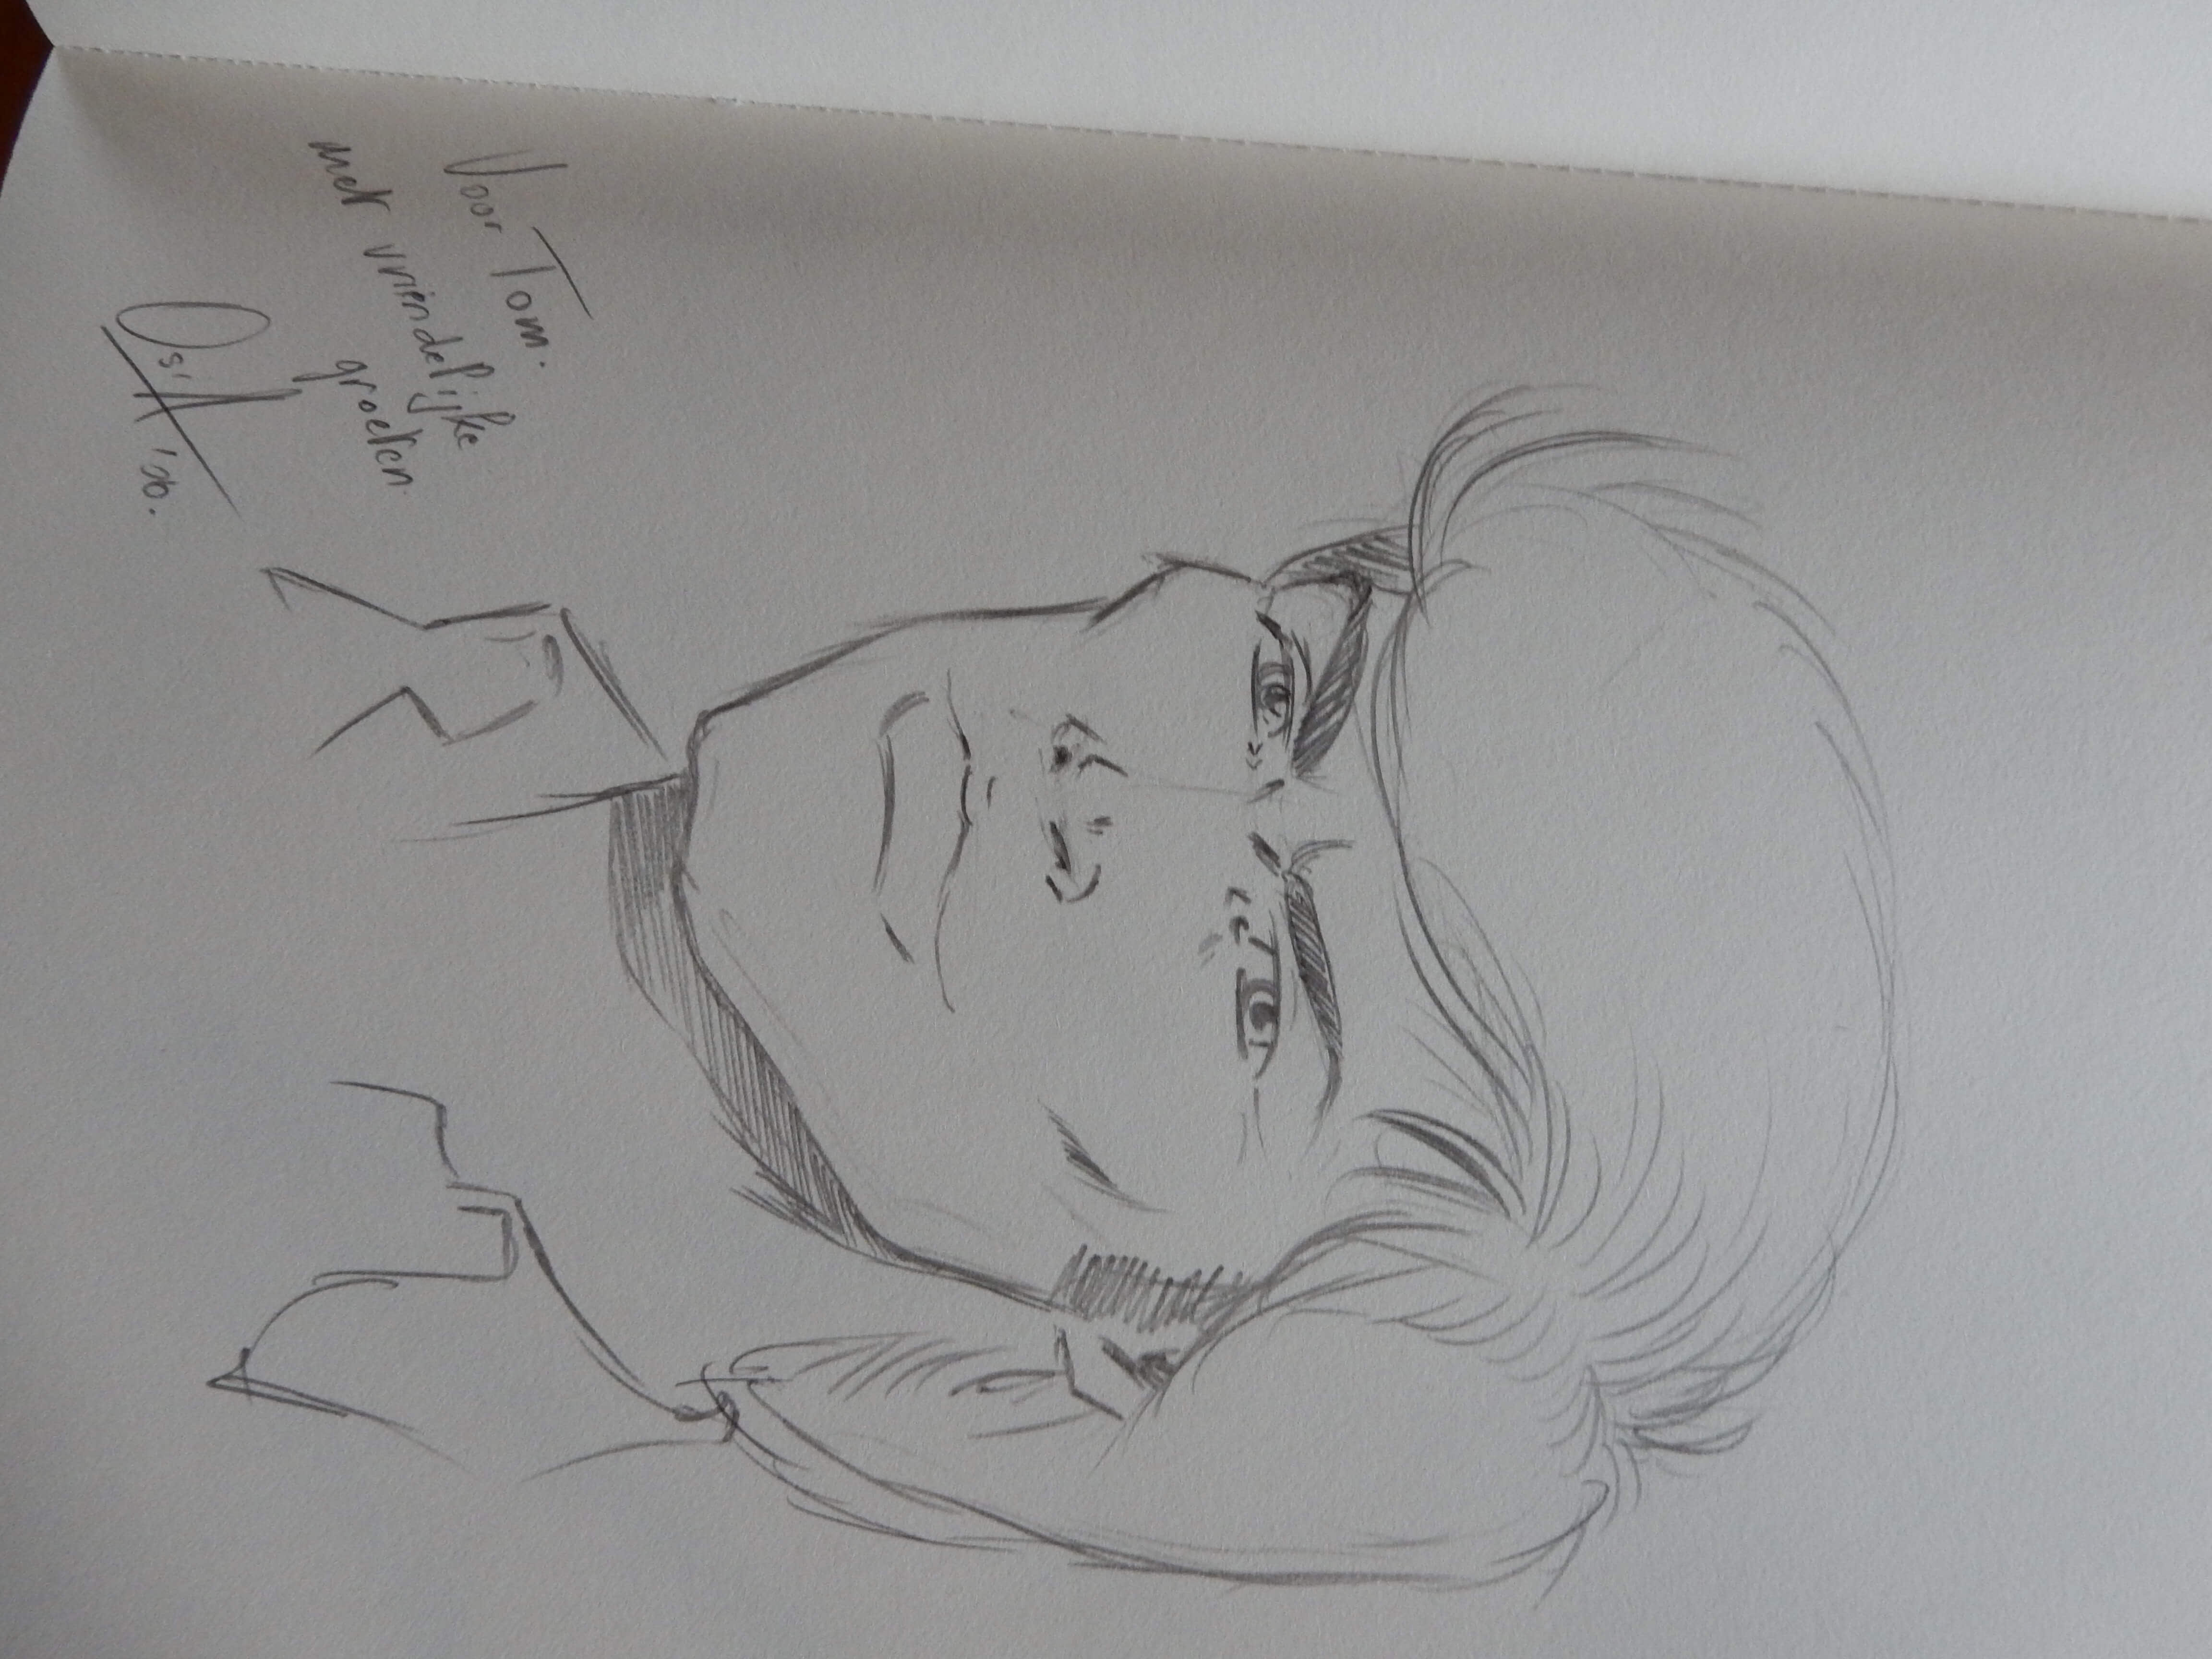 Voor Tom.
met vriendelijke
groeten
'06.